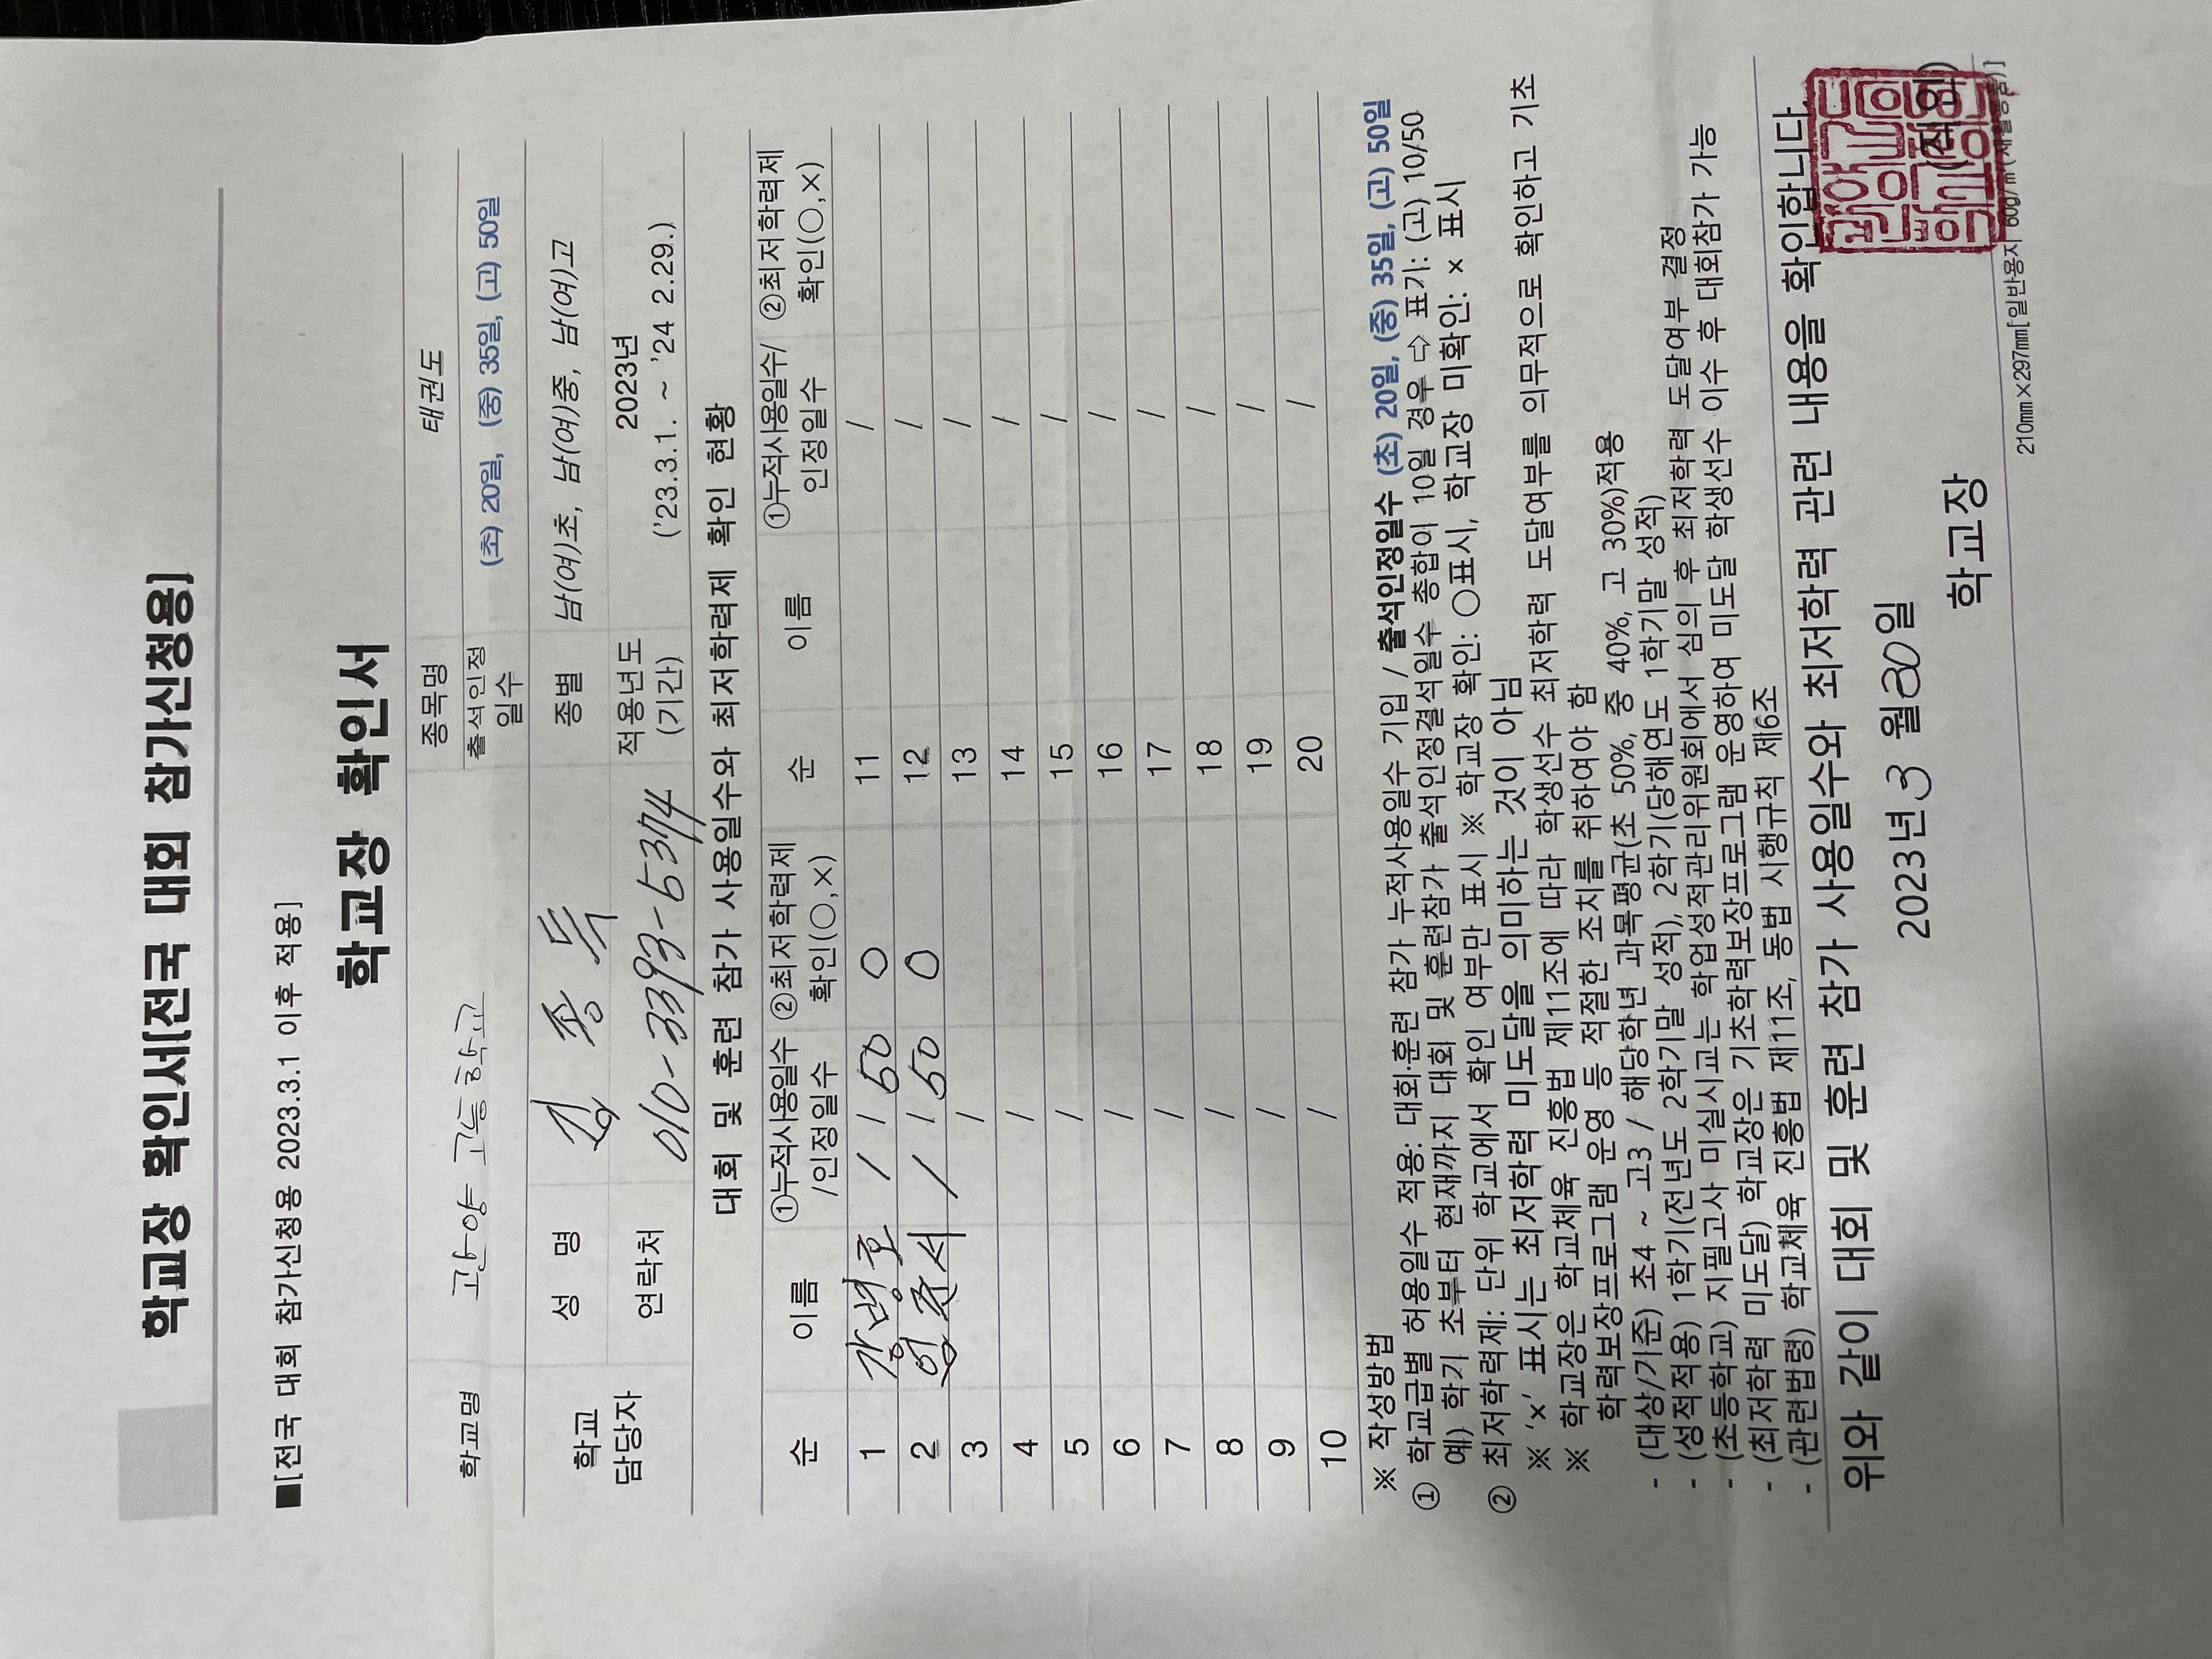 학교장 확인서[전국 대회 참가신청용]
■[전국 대회 참가신청용 2023.3.1 이후 적용]
학교장 확인서
학교명 고양고등학교 종목명 태권도
출석인정 일수 (초) 20일, (중) 35일, (고) 50일
학교 담당자 성 명 종별 남(여)초, 남(여)중, 남(여)고
연락처 010-3393-5374 적용년도 (기간) 2023년 ('23.3.1. ~ '24 2.29.)
대회 및 훈련 참가 사용일수와 최저학력제 확인 현황
순 이름 ①누적사용일수 /인정일수 ②최저학력제 확인(○,×) 순 이름 ①누적사용일수/ 인정일수 ②최저학력제 확인(○,×)
1 강병호 / / 50 O 11 /
2 엄준서 / / 50 O 12 /
3 / 13 /
4 / 14 /
5 / 15 /
6 / 16 /
7 / 17 /
8 / 18 /
9 / 19 /
10 / 20 /
※ 작성방법
① 학교급별 허용일수 적용: 대회·훈련 참가 누적사용일수 기입 / 출석인정일수 (초) 20일, (중) 35일, (고) 50일
예) 학기 초부터 현재까지 대회 및 훈련참가 출석인정결석일수 총합이 10일 경우 ⇨ 표기: (고) 10/50
② 최저학력제: 단위 학교에서 확인 여부만 표시 ※ 학교장 확인: ○표시, 학교장 미확인: × 표시
※ '×' 표시는 최저학력 미도달을 의미하는 것이 아님
※ 학교장은 학교체육 진흥법 제11조에 따라 학생선수 최저학력 도달여부를 의무적으로 확인하고 기초
학력보장프로그램 운영 등 적절한 조치를 취하여야 함
- (대상/기준) 초4 ~ 고3 / 해당학년 과목평균(초 50%, 중 40%, 고 30%)적용
- (성적적용) 1학기(전년도 2학기말 성적), 2학기(당해연도 1학기말 성적)
- (초등학교) 지필고사 미실시교는 학업성적관리위원회에서 심의 후 최저학력 도달여부 결정
- (최저학력 미도달) 학교장은 기초학력보장프로그램 운영하여 미도달 학생선수 이수 후 대회참가 가능
- (관련법령) 학교체육 진흥법 제11조, 동법 시행규칙 제6조
위와 같이 대회 및 훈련 참가 사용일수와 최저학력 관련 내용을 확인합니다.
2023년 3월 30일
학교장 (직인)
210㎜×297㎜[일반용지 60g/㎡(재활용품)]